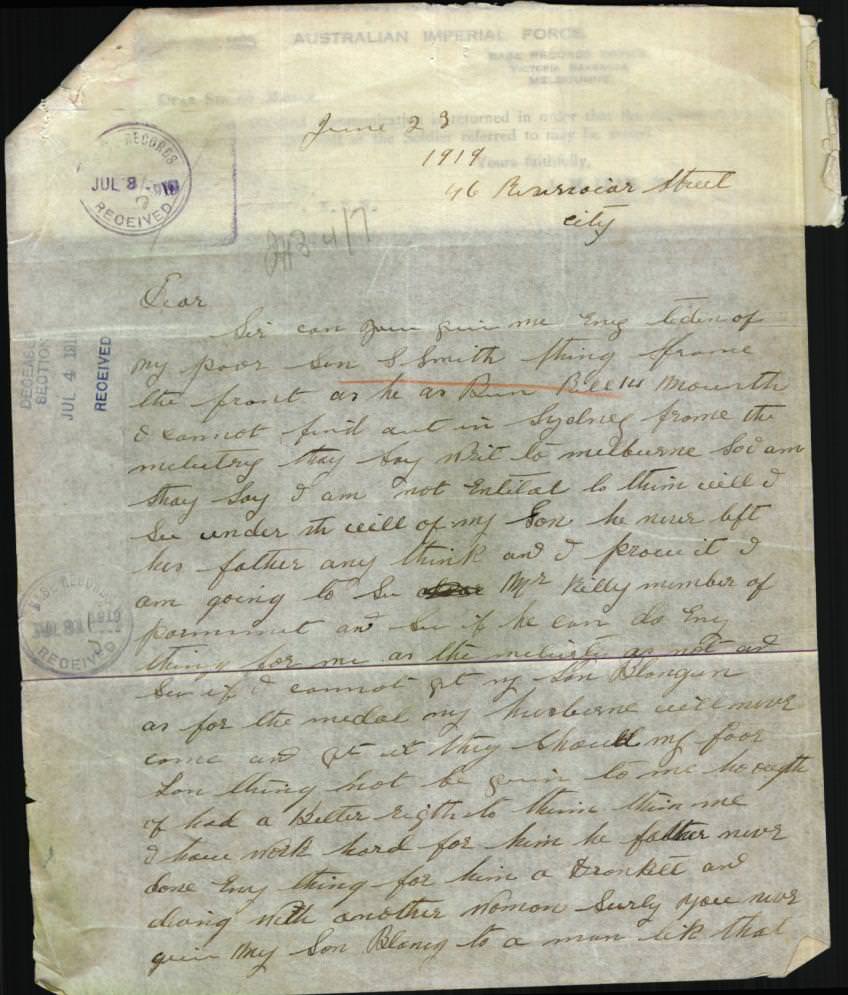 AUSTRALIAN IMPERIAL FORCE.
BASE RECORDS OFFICE,
VICTORIA BARRACKS,
MELBOURNE.
Dear Sir or Madam,
communication is returned in order that the
of the Soldier referred to may be
Yours faithfully,
June 23
1919
46 Reserviour Street
City
BASE RECORDS
JUL 8
RECEIVED
DECEASED
SECTION
JUL 4 191
RECEIVED
BASE RECORDS
JUL 8 1919
RECEIVED
Dear
Sir can you give me Eny tiden of
my poor son S Smith thing frome
the front as he as Bun Kill 14 mounth
I cannot find out in Sydney frome the
melutry thay Say writ to melburne So I am
thay Say I am not Entilat to thim will I
See under th will of my Son he never left
his father any think and I prove it I
am going to See Mr Killy member of
and See if he can do Eny
thing for me as the as not and
See if I cannot get my Son Blongen
as for the medal my husberne will never
come and get it they Should my poor
Son thing not be givin to me ho ougth
of had a Better rigth to them then me
I have work hard for him he father never
done Eny thing for him a Dronkett and
living with another woman Surly you never
givin my Son Blong to a man lik that